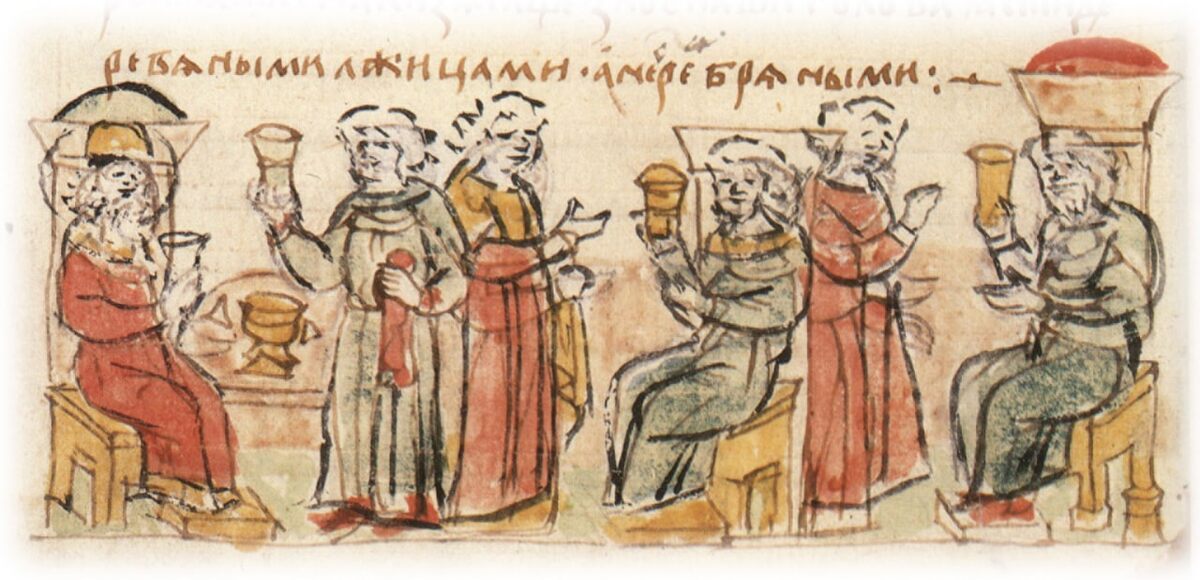 ревѧными лжицами · а не сребрѧными : —